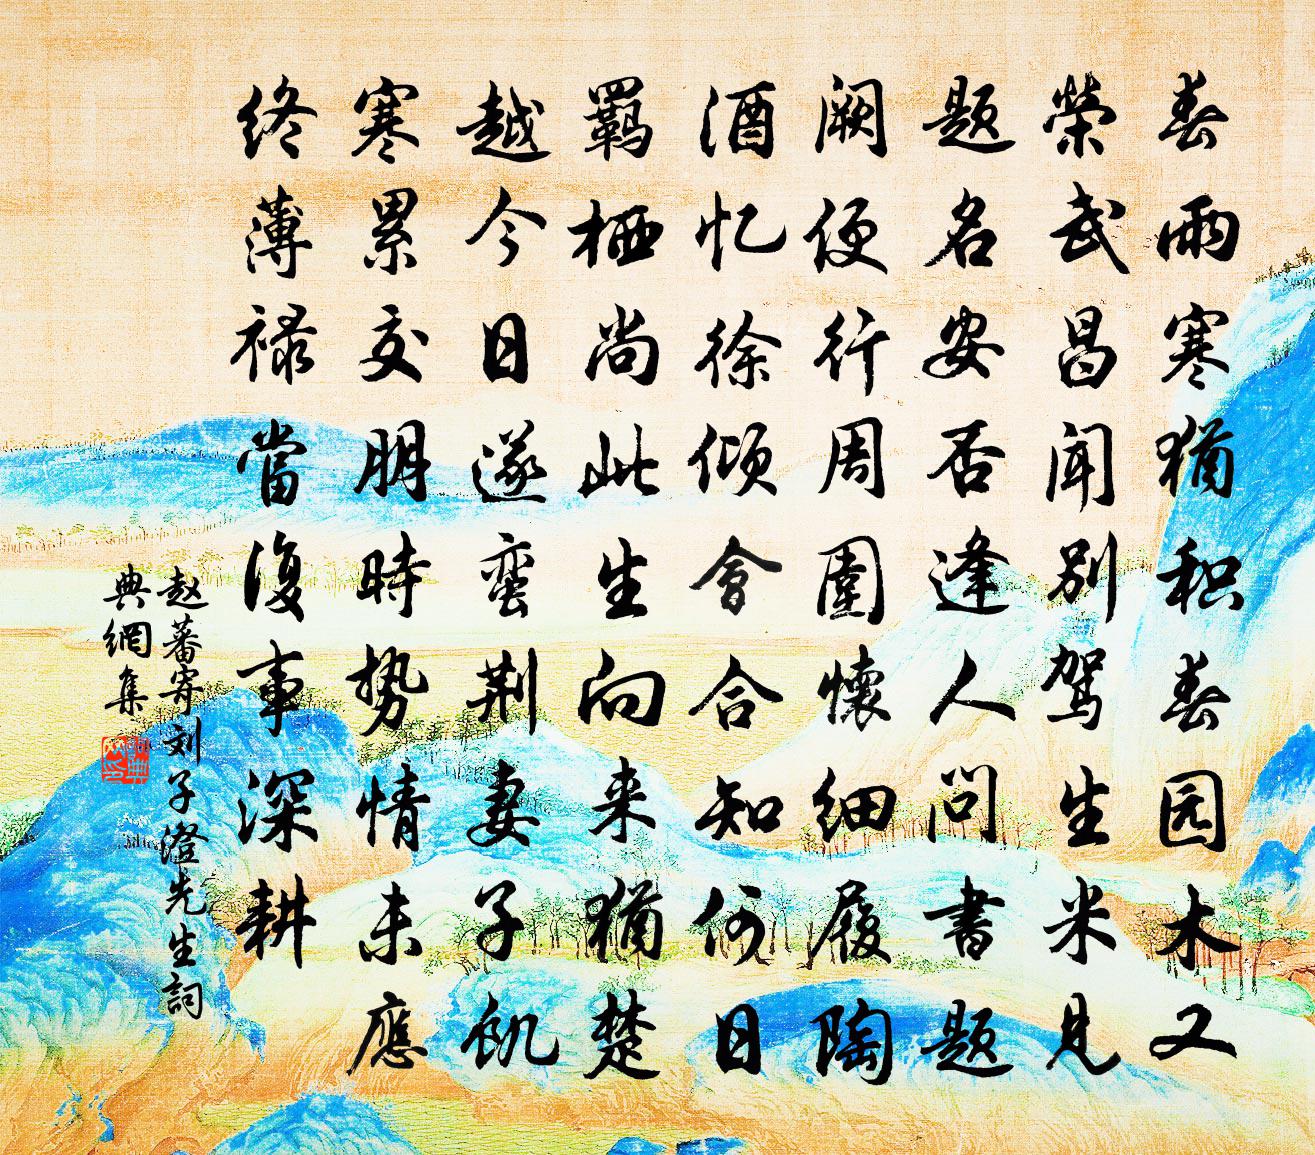 春雨寒猶积春园木又
榮武昌闻别驾生米見
题名安否逢人问書题
阙便行周圍懷细履陶
酒忆徐倾會合知何日
羁栖尚此生向来猶楚
越今日遂蛮荆妻子饥
寒累交朋時势情未應
终薄禄當復事深耕
赵蕃寄刘子澄先生詞
典網集